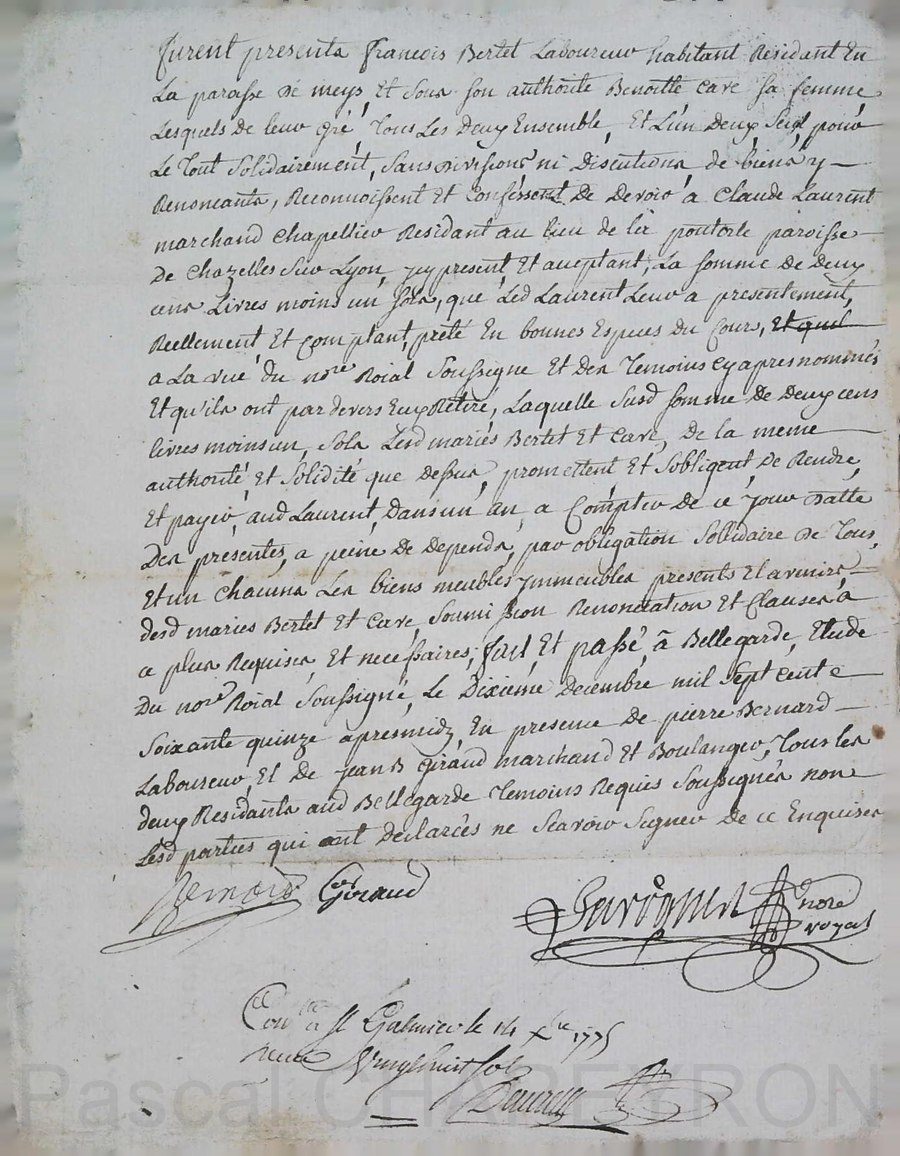 furent presents François Bertet Laboureur habitant Résidant En
La parasse de meys, Et Sous son authorité Benoitte Cave sa femme
Lesquels de leur gré, Tous Les Deux Ensemble, Et L'un Deux Seul, pour
Le Tout Solidairement, Sans divisions ni Discutions, de biens y
Renonçants, Reconnoissent Et Confessent De Devoir a Claude Laurent
marchand Chapellier Residant au lieu de la paroisse
De Chazelles Sur Lyon, ycy present Et aceptant, La somme de Deux
cens Livres moins un Sols, que Led Laurent Leur a presentement,
Réellement Et Comptant, prété En bonnes Espèces du Cours, Et quil
a La vue du nore Roial Soussigné Et des Temoins cy apres nommés
Et qu'ils ont pardevers Eux Retiré, Laquelle Susd somme De Deux cens
livres moins un Sols Lesd mariés Bertet Et Cave, de la meme
authorité Et Solidité que Dessus, promettent Et Sobligent De Rendre,
Et payer, aud Laurent, Dans un an, a Compter de ce jour Datte
Des présentes, a peine de Depends, par obligation Sollidaire De Tous
Et un Chacuns Les biens meubles ymmeubles presents Et avenirs,
desd mariés Bertet Et Cave, Soumission Renonciation Et Clauses a
a plus Requises, Et necessaires; fait, Et passé, à Bellegarde, Etude
Du nore Roial Soussigné, Le Dixieme Decembre mil Sept cent e
Soixante quinze apresmidy, En presence de pierre Bernard
Laboureur, Et de Jean B Giraud marchand Et Boulanger, Tous les
deux Residants aud Bellegarde Temoins Requis Soussignés non
Lesd parties qui ont Declarées ne Scavoir Signer De ce Enquises
Bernard Giraud
nore
royal
Conlle a St Galmier le 14 Xbre 1775
Vingt huit Sols
Pascal CHAPEYRON